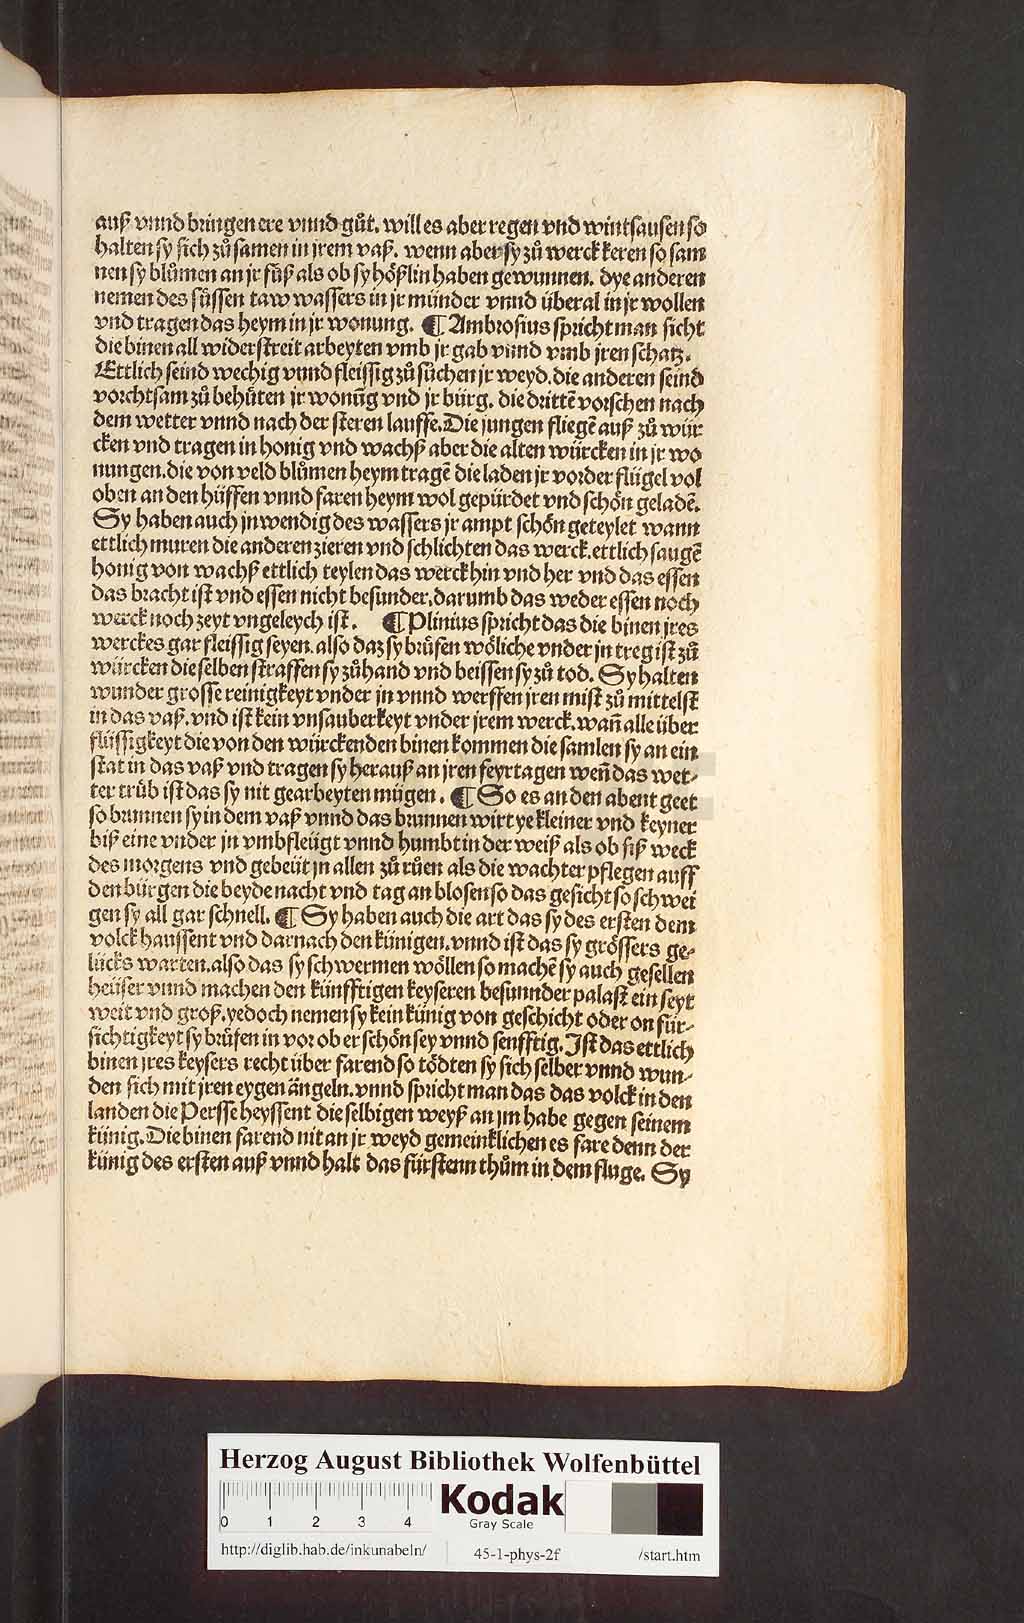 auß vnnd bringen ere vnnd gůt. will es aber regen vnd wintsausen so
halten sy sich zů samen in jrem vaß. wenn aber sy zů werck keren so sam
nen sy blůmen an jr füß als ob sy hößlin haben gewunnen. dye anderen
nemen des süssen taw wassers in jr münder vnnd überal in jr wollen
vnd tragen das heym in jr wonung. ¶ Ambrosius spricht man sicht
die binen all widerstreit arbeyten vmb jr gab vnnd vmb jren schatz.
Ettlich seind wechig vnnd fleissig zů sůchen jr weyd. die anderen seind
vorchtsam zů behůten jr wonūg vnd jr bürg. die drittē vorschen nach
dem wetter vnnd nach der steren lauffe. Die jungen fliegē auß zů wür
cken vnd tragen in honig vnd wachß aber die alten würcken in jr wo
nungen. die von veld blůmen heym tragē die laden jr vorder flügel vol
oben an den hüffen vnnd faren heym wol gepürdet vnd schön geladē.
Sy haben auch jnwendig des wassers jr ampt schön geteylet wann
ettlich muren die anderen zieren vnd schlichten das werck. ettlich saugē
honig von wachß ettlich teylen das werck hin vnd her vnd das essen
das bracht ist vnd essen nicht besunder. darumb das weder essen noch
werck noch zeyt vngeleych ist. ¶ Plinius spricht das die binen jres
werckes gar fleissig seyen. also daz sy brůfen wöliche vnder jn treg ist zů
würcken die selben straffen sy zůhand vnd beissen sy zů tod. Sy halten
wunder grosse reinigkeyt vnder jn vnnd werffen jren mist zů mittelst
in das vaß. vnd ist kein vnsauberkeyt vnder jrem werck. wañ alle über
flüssigkeyt die von den würckenden binen kommen die samlen sy an ein
stat in das vaß vnd tragen sy herauß an jren feyrtagen weñ das wet-
ter trůb ist das sy nit gearbeyten mügen. ¶ So es an den abent geet
so brummen sy in dem vaß vnnd das brummen wirt ye kleiner vnd keyner
biß eine vnder jn vmbfleügt vnnd humbt in der weiß als ob siß weck
des morgens vnd gebeüt jn allen zů růen als die wachter pflegen auff
den bürgen die beyde nacht vnd tag an blosen so das gesicht so schwei
gen sy all gar schnell. ¶ Sy haben auch die art das sy des ersten dem
volck haussent vnd darnach den künigen. vnnd ist das sy grössers ge-
lücks warten. also das sy schwermen wöllen so machē sy auch gesellen
heüser vnnd machen den künfftigen keyseren besunnder palast ein seyt
weit vnd groß. yedoch nemen sy kein künig von geschicht oder on für-
sichtigkeyt sy brüfen in vor ob er schön sey vnnd senfftig. Ist das ettlich
binen jres keysers recht über farend so tödten sy sich selber vnnd wun-
den sich mit jren eygen ängeln. vnnd spricht man das das volck in den
landen die Persse heyssent die selbigen weyß an jm habe gegen seinem
künig. Die binen farend nit an jr weyd gemeinklichen es fare denn der
künig des ersten auß vnnd halt das fürstenn thům in dem fluge. Sy
Herzog August Bibliothek Wolfenbüttel
0 1 2 3 4
Kodak
Gray Scale
http://diglib.hab.de/inkunabeln/ 45-1-phys-2f /start.htm